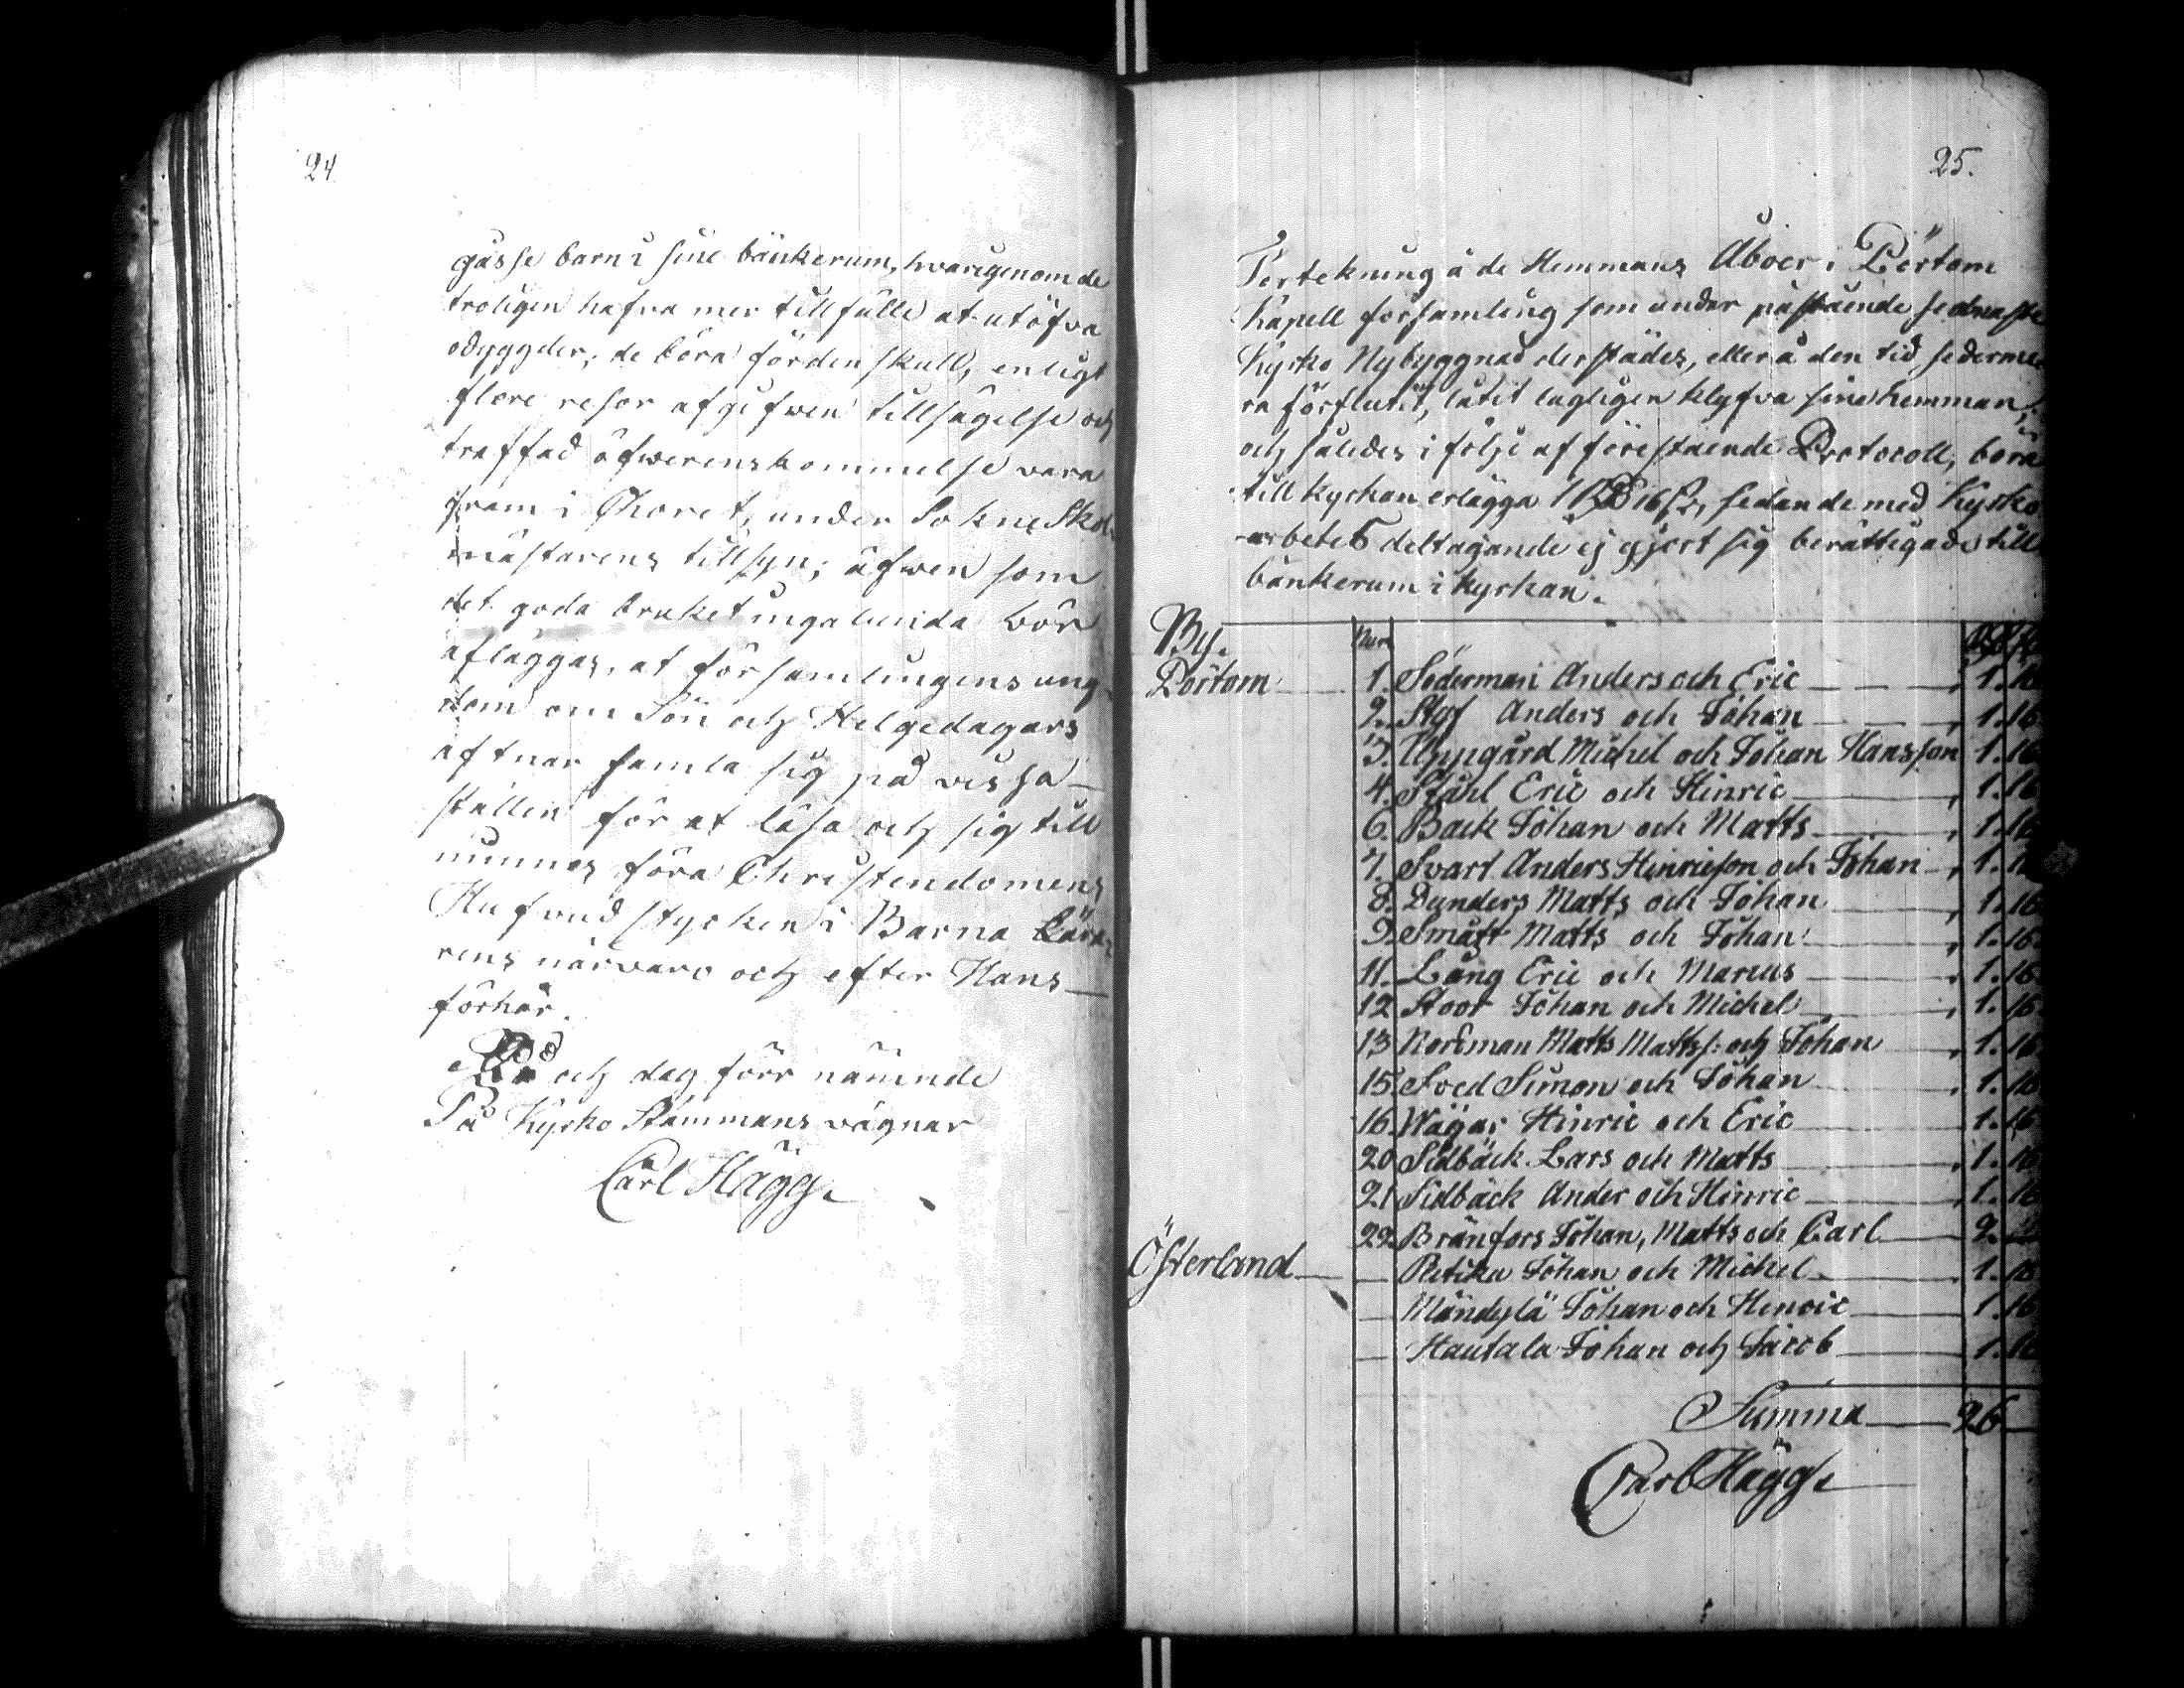 24.
gåsse barn i sine bänkerum, hvarigenom de
troligen hafva mer tillfälle at utöfva
odygder; de böra förden skull, enligt
flere resor afgifwen tillsägelse och
träffad öfwerenskommelse vara
fram i Choret, under Sokne Skol-
mästarens tillsyn; äfwen som
det goda bruket ingalunda bör
afläggas, at församlingens ung-
dom om Sön och Helgedagars
aftnar samla sig på vissa
ställen för at läsa och sig till
minnes föra Christendomens
Hufvud stycken i Barna Lära-
rens närvaro och efter Hans
förhör.
År och dag förr nämnde
På Kyrko Stämmans vägnar
Carl Hägg.
25.
Förtekning å de Hemmans Åboer i Pörtom
Kapell församling som under påstående sednaste
Kyrko Nybyggnad derstädes, eller å den tid sederme-
ra förflutit, låtit lagligen klyfva sine hemman,
och således i följe af förestående Protocoll, böra
till kyrkan erlägga 1 Rd 16 s, sedan de med Kyrko
arbetets deltagande ej gjort sig berättigade till
bänkerum i kyrkan.
By. Num
Pörtom 1. Söderman Anders och Eric 1.16
2. Styf Anders och Johan 1.16
3. Uppgård Michel och Johan Hansson 1.16
4. Ståhl Eric och Hinric 1.16
6. Back Johan och Matts 1.16
7. Svart Anders Hinricson och Johan 1.16
8. Dunders Matts och Johan 1.16
9. Smått Matts och Johan 1.16
11. Lång Eric och Marcus 1.16
12 Stoor Johan och Michel 1.16
13 Norrman Matts Mattss: och Johan 1.16
15. Sved Simon och Johan 1.16
16. Wägar Hinric och Eric 1.16
20 Sidbäck Lars och Matts 1.16
21 Sidbäck Ander och Hinric 1.16
22. Bränfors Johan, Matts och Carl 2.
Österland Johan och Michel 1.16
Mändylä Johan och Henric 1.16
Hautala Johan och Jacob 1.16
Summa 26
Carl Hägg.